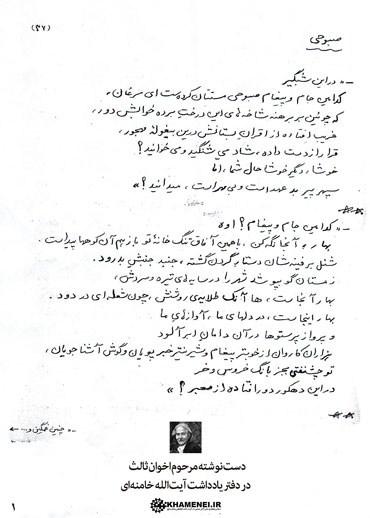 (۳۷)
صبوحی
ـ «در این شبگیر
کدامین جام و پیغام صبوحی مستتان کرده‌ست ای مرغان،
که چونین بر برهنه شاخه‌های این درخت برده خوابش دور،
غریب افتاده از اقران بستانش درین بیغوله مهجور،
قرار از دست داده، شاد می‌شنگید و می‌خوانید؟
خوشا، دیگر خوشا حال شما، اما
سپهر پیر بد عهد است و بی‌مهر است، میدانید؟»
***
ـ «کدامین جام و پیغام؟ اوه
بهار، آنجا نگه کن، با همین آفاق تنگ خانهٔ تو باز هم آن کوهها پیداست.
شنل برفینه‌شان دستار گردن گشته، جنبد جنبش بدرود.
زمستان گو بپوشد شهر را در سایه‌های تیره و سردش،
بهار آنجاست، ها آنک طلایه‌ی روشنش، چون شعله‌ای در دود.
بهار اینجاست، در دلهای ما، آوازهای ما
و پرواز پرستوها در آن دامان ابرآلود
هزاران کاروان از خوبتر پیغام و شیرینتر خبر پویان و گوش آشنا جویان،
تو چشنفتی بجز بانگ خروس و خر
در این دهکور دور افتاده از معبر؟»
***
چنین غمگین و...
دست‌نوشته مرحوم اخوان ثالث
در دفتر یادداشت آیت‌الله خامنه‌ای
KHAMENEI.IR
۱